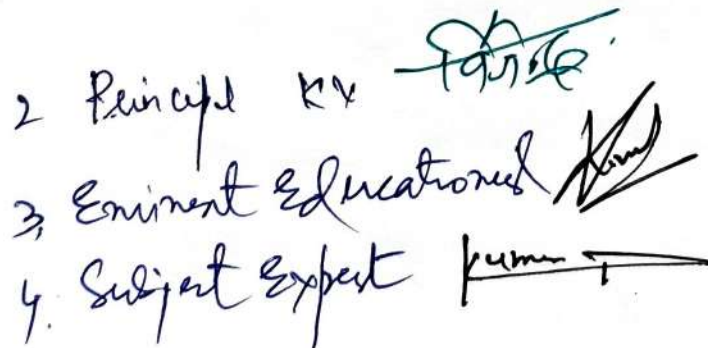 2 Principal KV
3, Eminent Educationist
4. Subject Expert Kumar